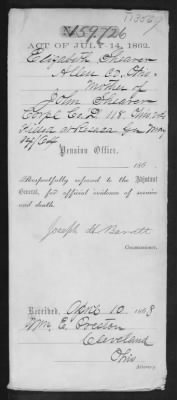 159.726
ACT OF JULY 14, 1862.
Elizabeth Shearer
Allen Co. Ohio
Mother of
John Shearer
Corpl Co. D 118. Ohio Vols
Killed at Resaca Ga May
Pension Office,
186
Respectfully referred to the Adjutant
General, for official evidence of service
and death.
Joseph H Barrett
Commissioner.
Received, April 10 1868
Wm. E. Preston
Cleveland
Ohio
Attorney.